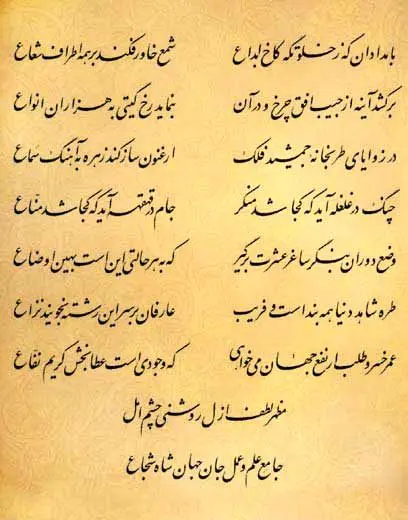 بامدادان که ز خلوتگه کاخ ابداع شمع خاور فکند بر همه اطراف شعاع
برکشد آینه از جیب افق چرخ و در آن بنماید رخ گیتی به هزاران انواع
در زوایای طربخانه جمشید فلک ارغنون ساز کند زهره به آهنگ سماع
چنگ در غلغله آید که کجا شد منکر جام در قهقهه آید که کجا شد مناع
وضع دوران بنگر ساغر عشرت برگیر که به هر حالتی این است بهین اوضاع
طره شاهد دنیا همه بند است و فریب عارفان بر سر این رشته نجویند نزاع
عمر خسرو طلب ار نفع جهان می‌خواهی که وجودی است عطابخش کریم نفاع
مظهر لطف ازل روشنی چشم امل
جامع علم و عمل جان جهان شاه شجاع